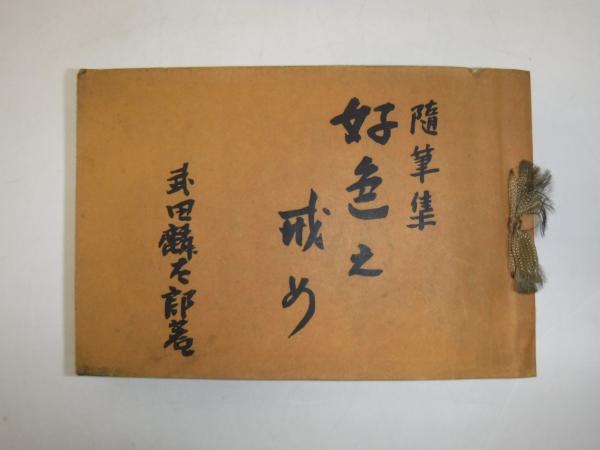 隨筆集
好色之
戒め
武田麟太郎著